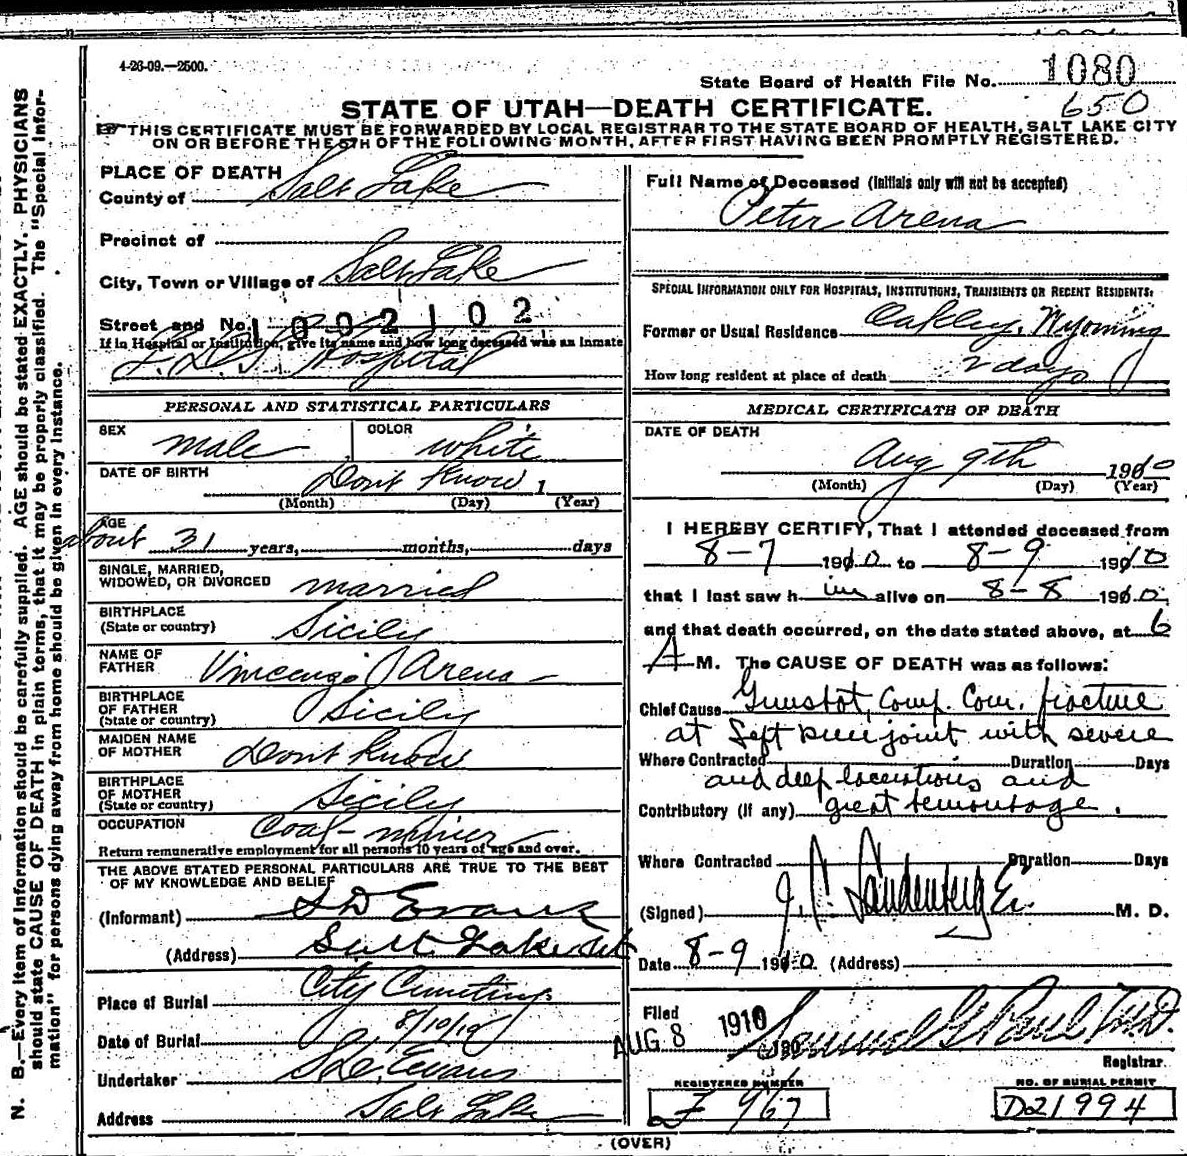 4-26-09.—2500.
State Board of Health File No. 1080
650
STATE OF UTAH—DEATH CERTIFICATE.
THIS CERTIFICATE MUST BE FORWARDED BY LOCAL REGISTRAR TO THE STATE BOARD OF HEALTH, SALT LAKE CITY
ON OR BEFORE THE 5TH OF THE FOLLOWING MONTH, AFTER FIRST HAVING BEEN PROMPTLY REGISTERED.
PLACE OF DEATH
County of Salt Lake
Precinct of
City, Town or Village of Salt Lake
Street and No. 1002102
If in Hospital or Institution, give its name and how long deceased was an Inmate
L.D.S. Hospital
PERSONAL AND STATISTICAL PARTICULARS
SEX male COLOR white
DATE OF BIRTH Dont Know 1
(Month) (Day) (Year)
AGE
about 31 years, months, days
SINGLE, MARRIED,
WIDOWED, OR DIVORCED married
BIRTHPLACE
(State or country) Sicily
NAME OF
FATHER Vincenzo Arena
BIRTHPLACE
OF FATHER
(State or country) Sicily
MAIDEN NAME
OF MOTHER Dont Know
BIRTHPLACE
OF MOTHER
(State or country) Sicily
OCCUPATION Coal-miner
Return remunerative employment for all persons 10 years of age and over.
THE ABOVE STATED PERSONAL PARTICULARS ARE TRUE TO THE BEST
OF MY KNOWLEDGE AND BELIEF
(Informant) S D Evans
(Address) Salt Lake
Place of Burial City Cemetery
Date of Burial 8/10/10
Undertaker S.D. Evans
Address Salt Lake
Full Name of Deceased (Initials only will not be accepted)
Peter Arena
SPECIAL INFORMATION ONLY FOR HOSPITALS, INSTITUTIONS, TRANSIENTS OR RECENT RESIDENTS:
Former or Usual Residence Oakley, Wyoming
How long resident at place of death 2 days
MEDICAL CERTIFICATE OF DEATH
DATE OF DEATH
Aug 9th 1910
(Month) (Day) (Year)
I HEREBY CERTIFY, That I attended deceased from
8-7 1910 to 8-9 1910
that I last saw him alive on 8-8 1910,
and that death occurred, on the date stated above, at 6
A M. The CAUSE OF DEATH was as follows:
Chief Cause Gunshot, Comp. Com. fracture
at left knee joint with severe
Where Contracted Duration Days
and deep lacerations and
Contributory (if any) great hemorrhage.
Where Contracted Duration Days
(Signed) M. D.
Date 8-9 1910 (Address)
Filed
AUG 8 1910 190 Samuel G Paul M.D.
Registrar
REGISTERED NUMBER
967
NO. OF BURIAL PERMIT
D21994
(OVER)
N. B.—Every item of information should be carefully supplied. AGE should be stated EXACTLY. PHYSICIANS
should state CAUSE OF DEATH in plain terms, that it may be properly classified. The "Special Infor-
mation" for persons dying away from home should be given in every instance.